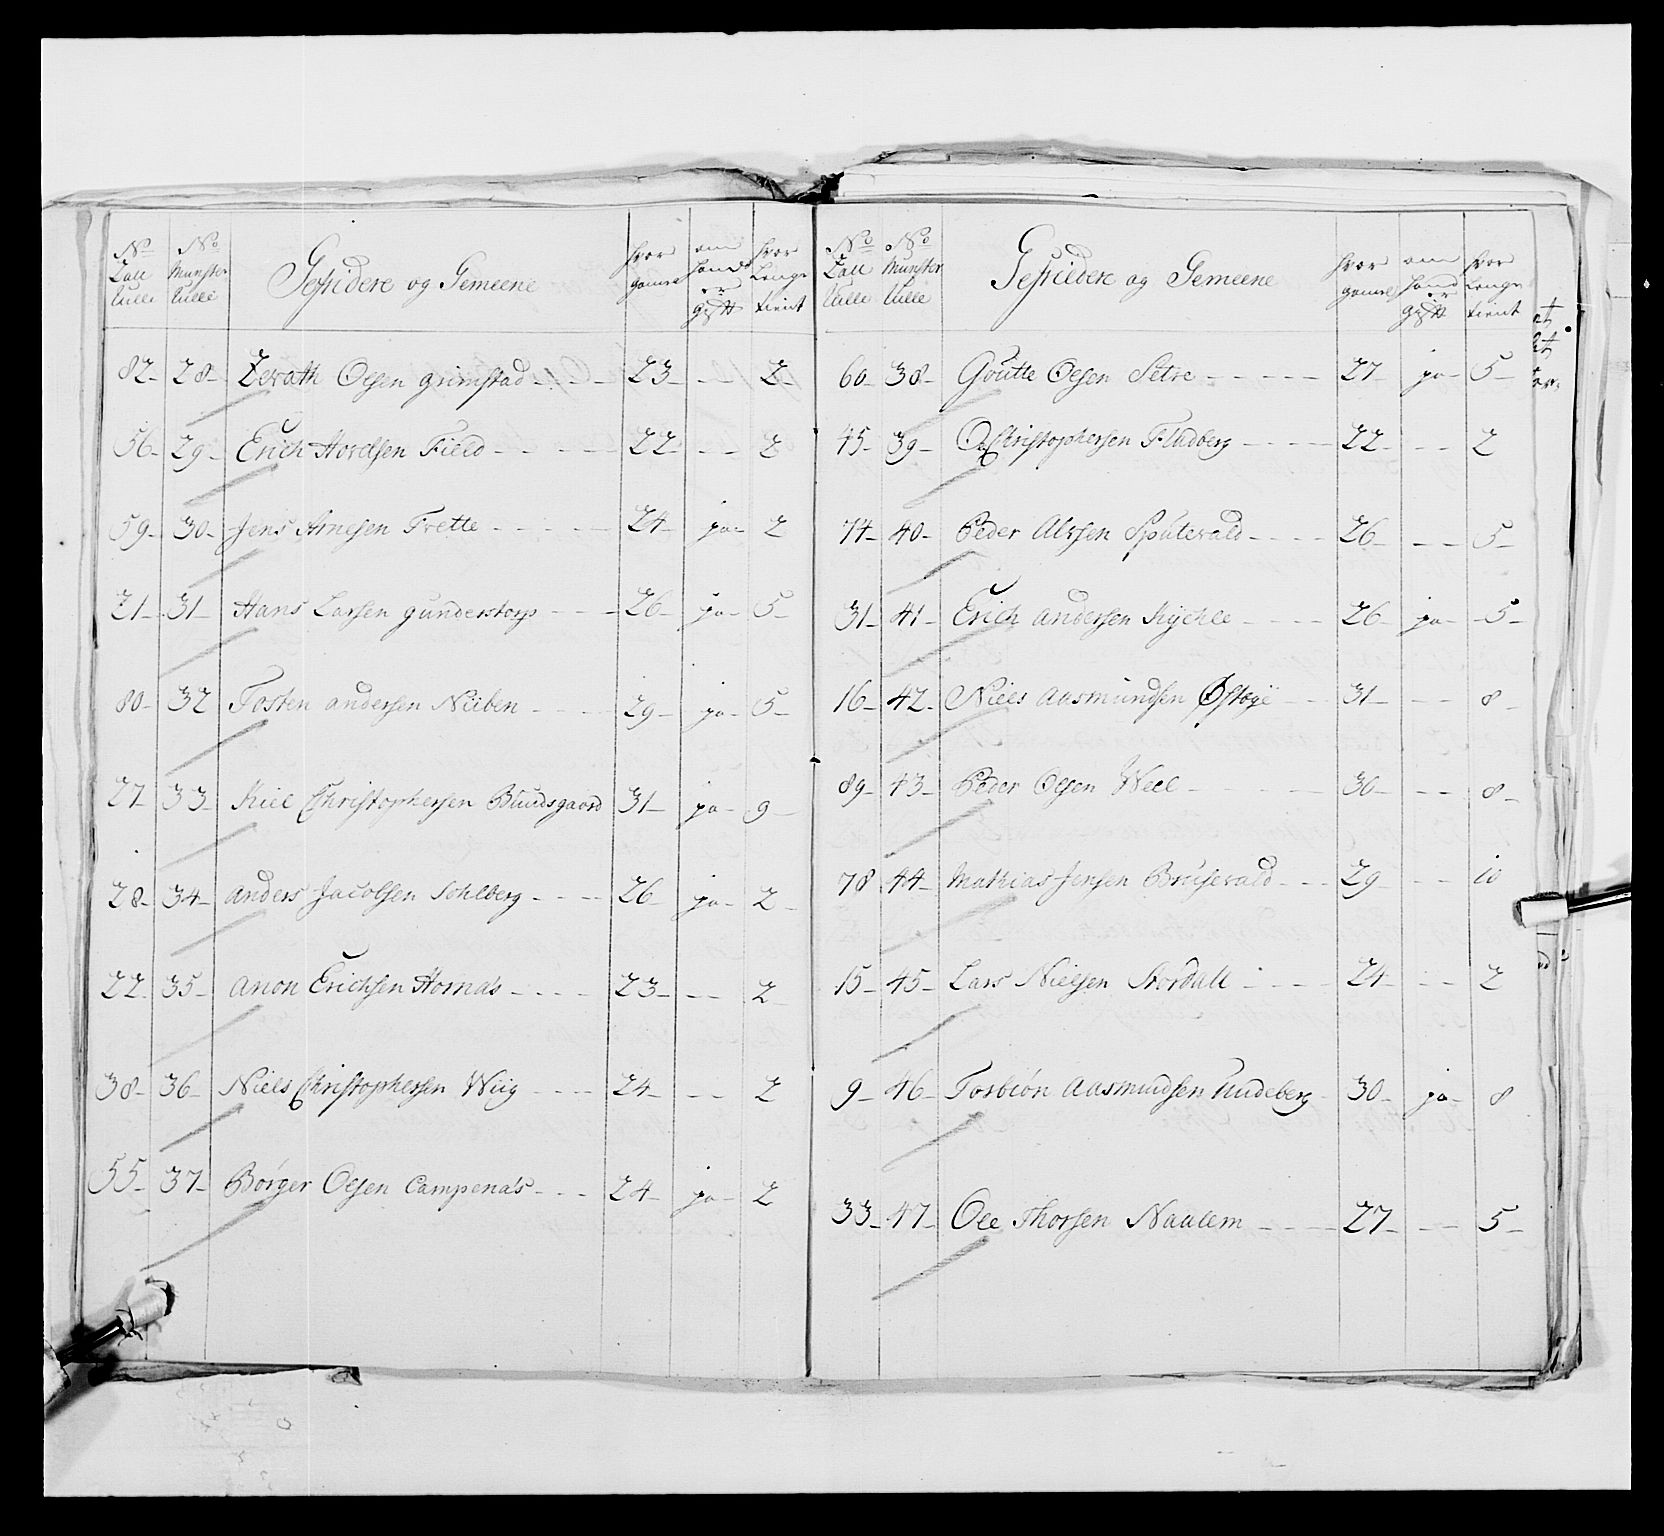 No Lau Rulle | No Munster Rulle | Gefridere og Gemeene | hvor gamel | om hand er gift | hvor Lenge tient
82 - 28 - Zerath Olsen grimstad - 23 - - - 2
56 - 29 - Erich Hovelsen Field - 22 - - - 2
59 - 30 - Jens Arnesen Frette - 24 - ja - 2
21 - 31 - Hans Larsen gunderstorp - 26 - ja - 5
80 - 32 Tosten andersen Nüben - 29 - ja - 5
27 - 33 - Kiel Christophersen Bundsgaard 31 - ja - 9
28 - 34 - anders Jacobsen Sohlberg - 26 - ja - 2
22 - 35 - anon Erichsen Hornæs - 23 - - - 2
38 - 36 - Niels Christophersen Wiig - 24 - - - 2
55 - 37 - Börger Olsen Campenæs - 24 - ja - 2
No Lau Rulle | No Munster Rulle | Gefridere og Gemeene | hvor gamel | om hand er gift | hvor Lenge tient
60 - 38 - Goutte Olsen Setre - 27 - ja - 5
45 - 39 - Ole Christophersen Fladberg - 22 - - - 2
74 - 40 - Peder Alfsen Spütevald - 26 - - - 5
31 - 41 - Erich andersen Kychle - 26 - ja - 5
16 - 42 - Niels aasmundsen Østøye - 31 - - - 8
89 - 43 - Peder Olsen Weel - 30 - - - 8
78 44 - Mathias Jensen Brusevald - 29 - - - 10
15 - 45 - Lars Nielsen Stordall - 24 - - - 2
9 - 46 - Torbiön Aasmundsen Hudeberg - 30 - ja - 8
33 - 47 - Ole Thorsen Naalem - 27 - - - 5